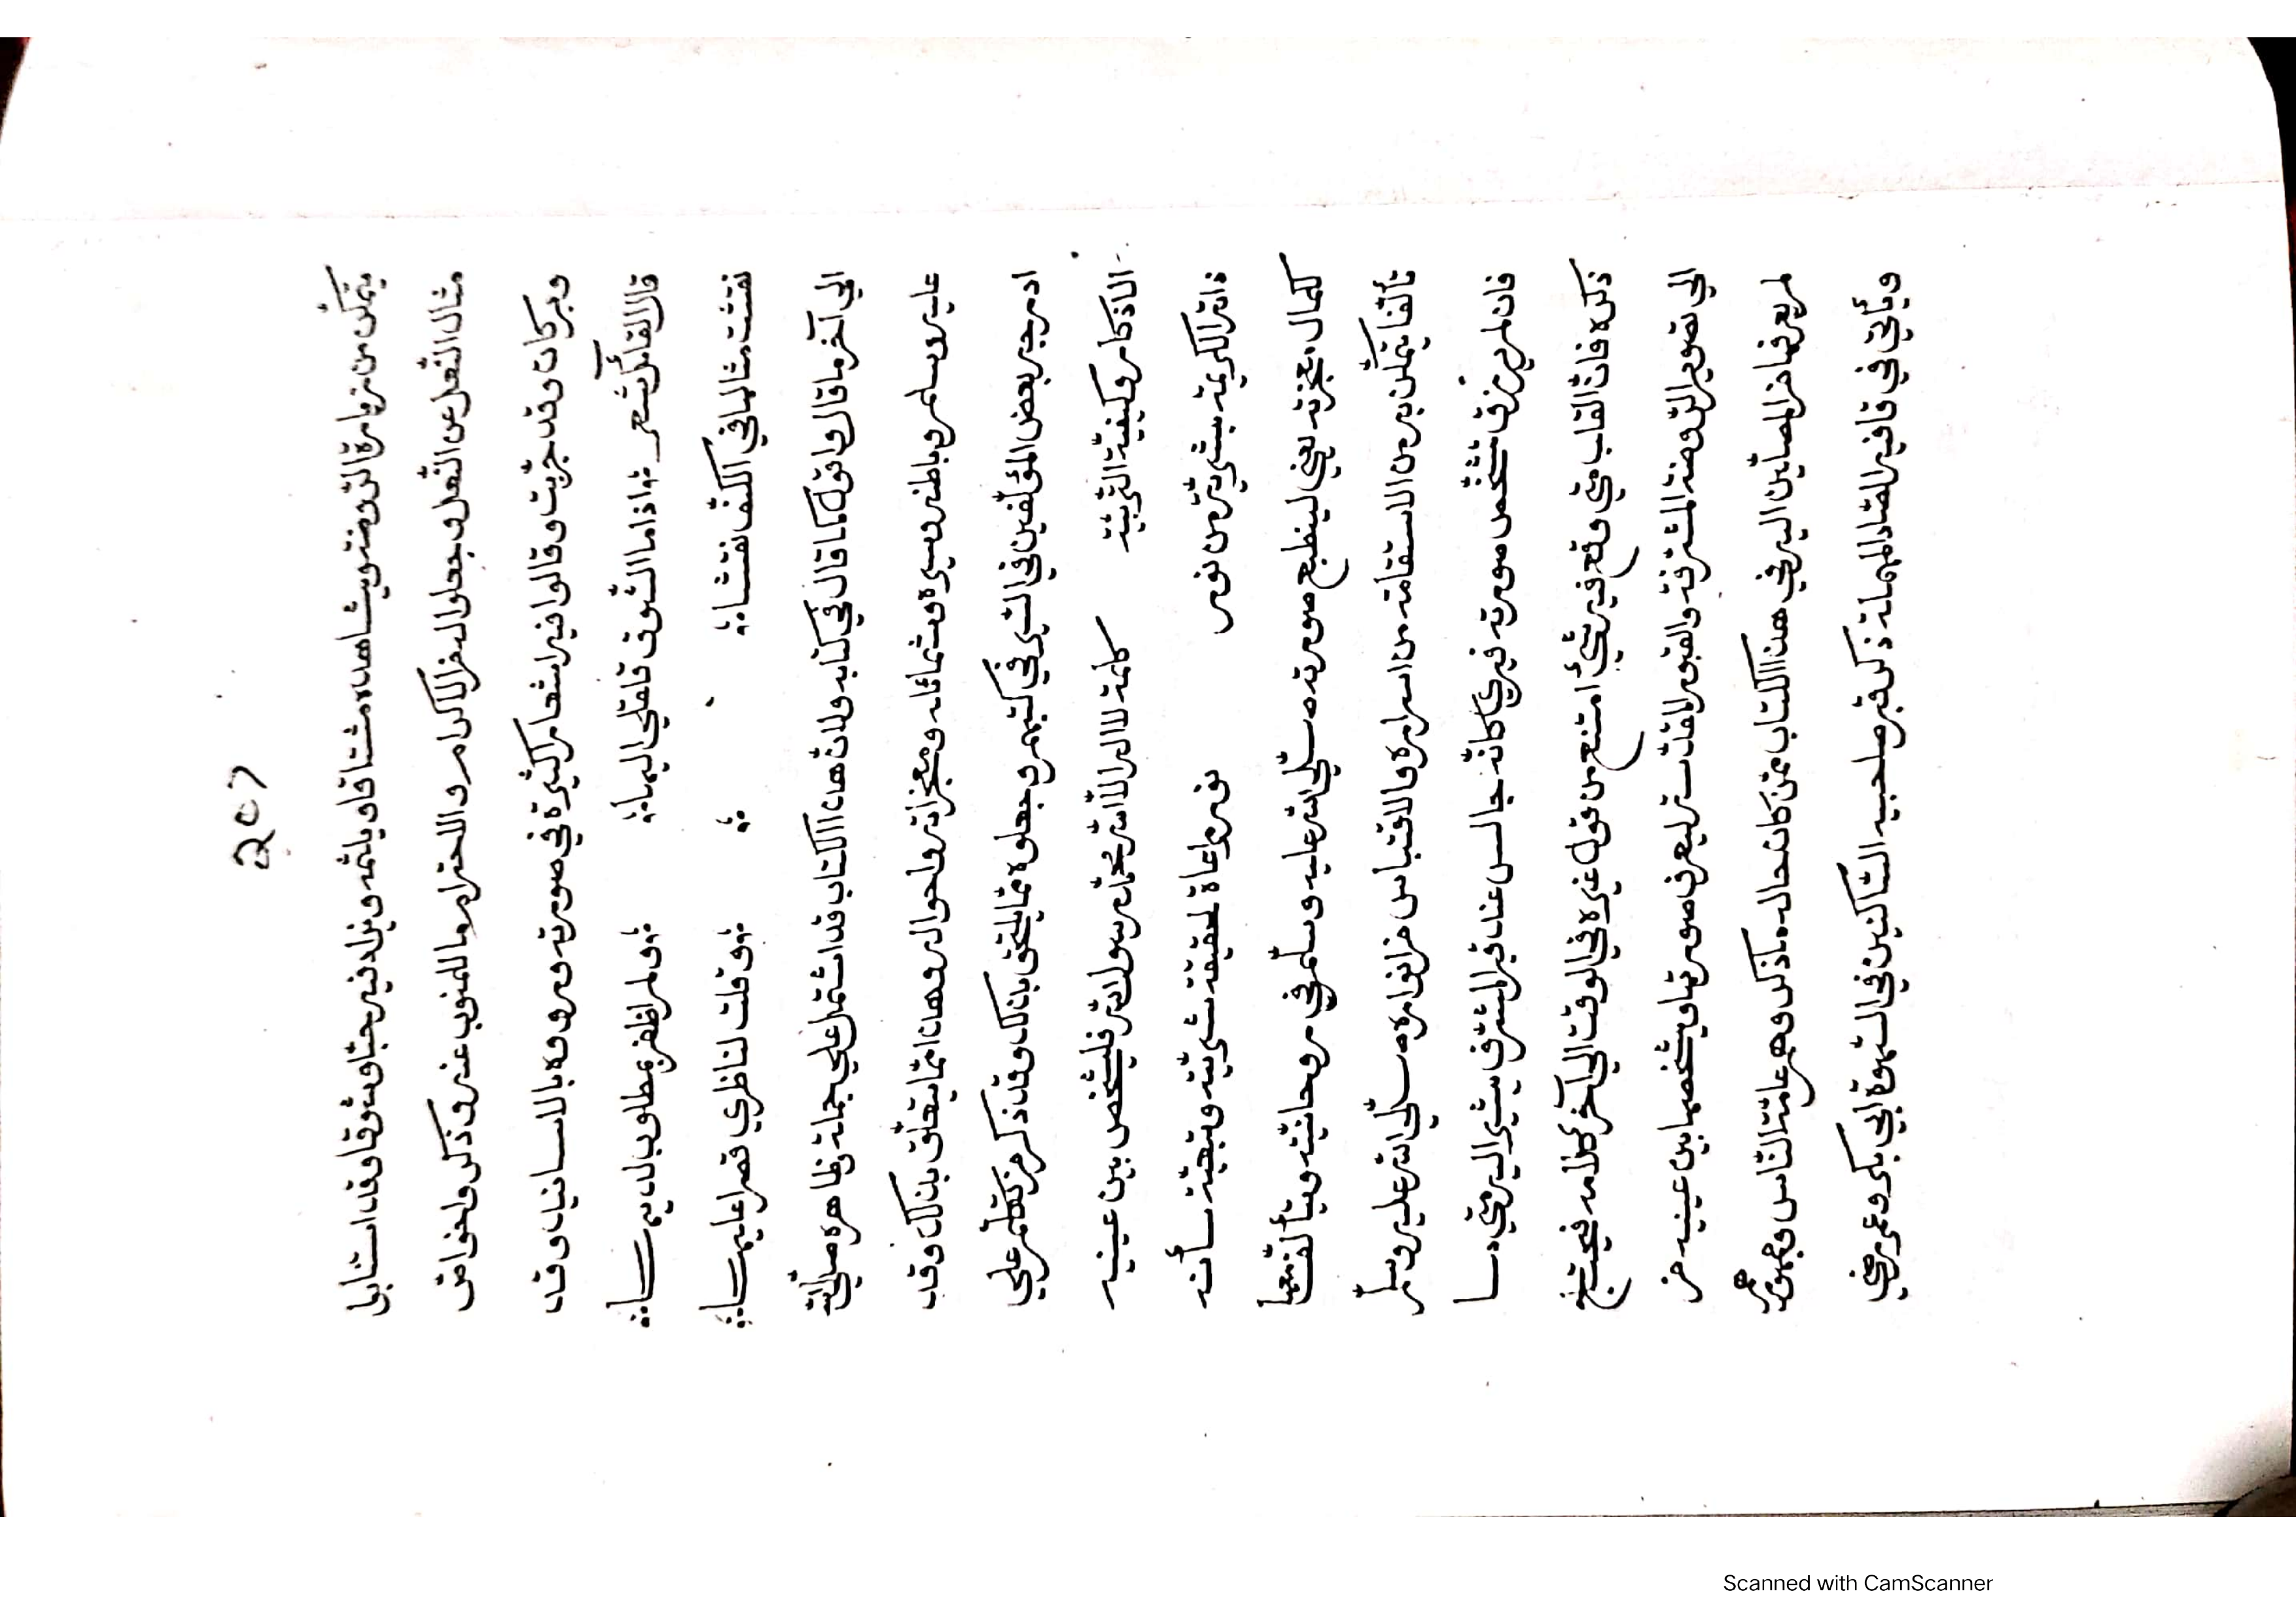 207
يتمكّن من زيارة الرّوضة ويشاهده مشتاقا ويلثمه ويزداد فيه حبّا وشوقا وقد استنابوا
مثال النّعل عن النّعل وجعلوا له من الاكرام والاحترام ما للمنوب عنه وذكروا خواصّ
وبركات وقد جرّبت وقالوا فيه اشعارا كثيرة في صورته ورووه بالاسانيد وقد
قال القائل شعر اذاما الشّوق قلقلي اليها ولم اظفر بمطلوبي لديها
نقشت مثالها في الكفّ نقشا وقلت لناظري قصرا عليها
الي آخر ما قال واقول كما قال في كتابه ولانّ هذا الكتاب قد اشتمل علي جملة وظاهره صلّي اللّٰه
عليه وسلم وباطنه وسيره وشمائله ومعجزاته واحواله وهذا ممّا يتعلّق بذلك وقد
ادرجه بعض المؤلّفين في السّير في كتبهم وجعلوه ممّا يلتحق بذلك وقد ذكر من تكلّم علي
الاذكار وكيفيّة التّربية كلمة لا اله الاّ اللّٰه محمّد رسول اللّٰه فليشخّص بين عينيه
ذاته الكريمة بشريّة من نور نور لحقيقة بشريّته وتبعيّة سأنه
كلمال معجزته يعني لينطبع صورته صلّي اللّٰه عليه وسلّم في روحانيّته ويتألّف معها
تألّفا يتمكّن به من الاستقامة من اسراره والاقتباس من انواره صلّي اللّٰه عليه وسلّم
فان لم يرزق تشخّص صورته فيري كانّه جالس عند قبره المشرّف يشير اليه متي ما
ذكره فانّ القلب متي وقع فيه شيئ امتنع من قول غيره في الوقت الي آخر كلامه فيحتج
الي تصوير الرّوضة المشرّفة والقبور المقدّسة ليعرف صورتها ويشخّصها بين عينيه من
لم يعرفها من المصلّين اليه في هذا الكتاب ممّن كان حاله ما ذكر وهم عامّة النّاس وجمهورهم
ويأتي في قافيه القاد المهملة ذكر قبر صاحبيه السّاكنين في السّهوة ابي بكر وعمر رضي
Scanned with CamScanner